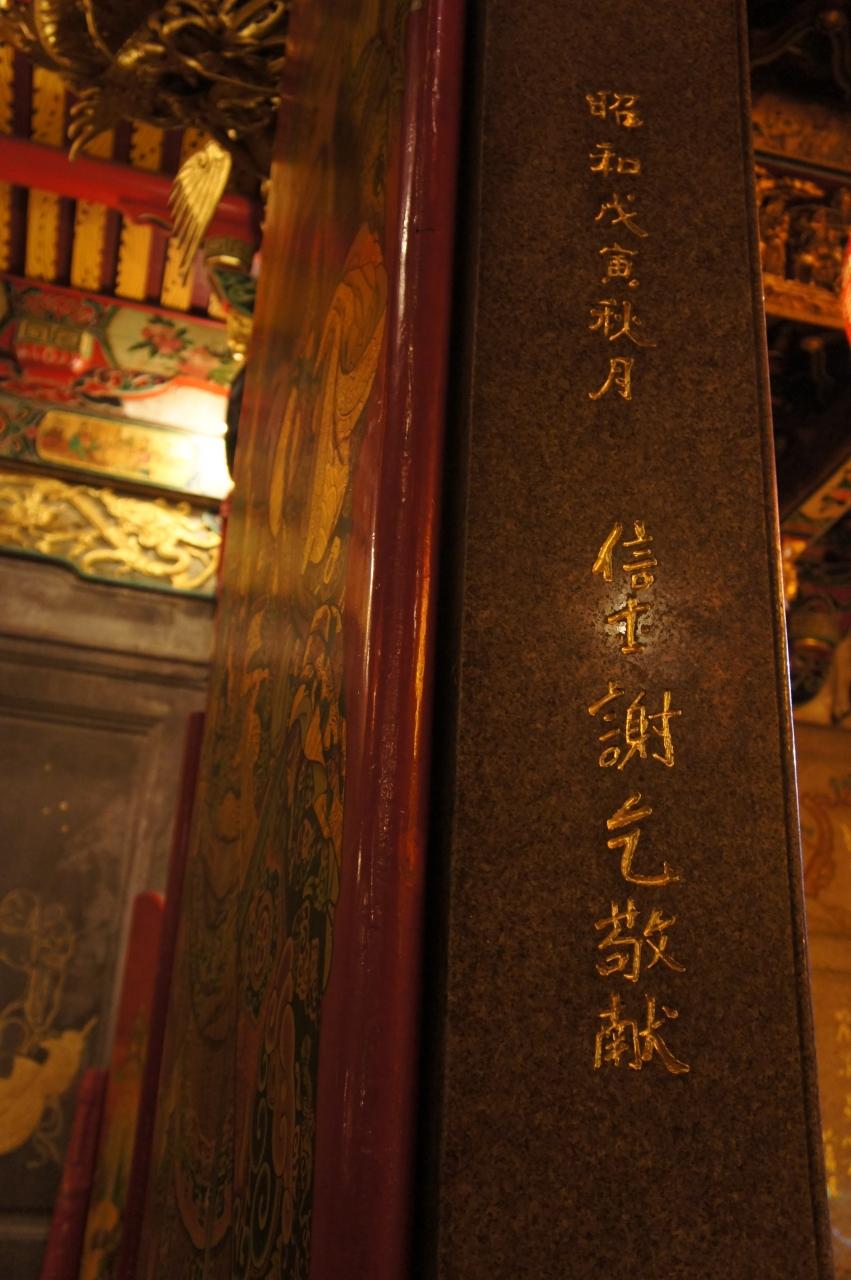 昭和戊寅秋月
信士謝乞敬献